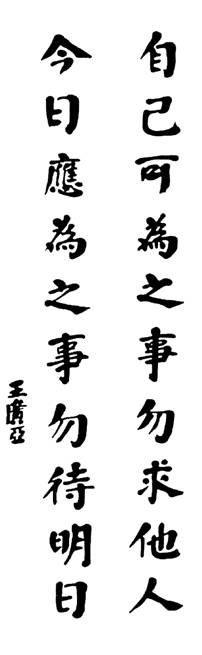 自己可為之事勿求他人
今日應為之事勿待明日
王廣亞